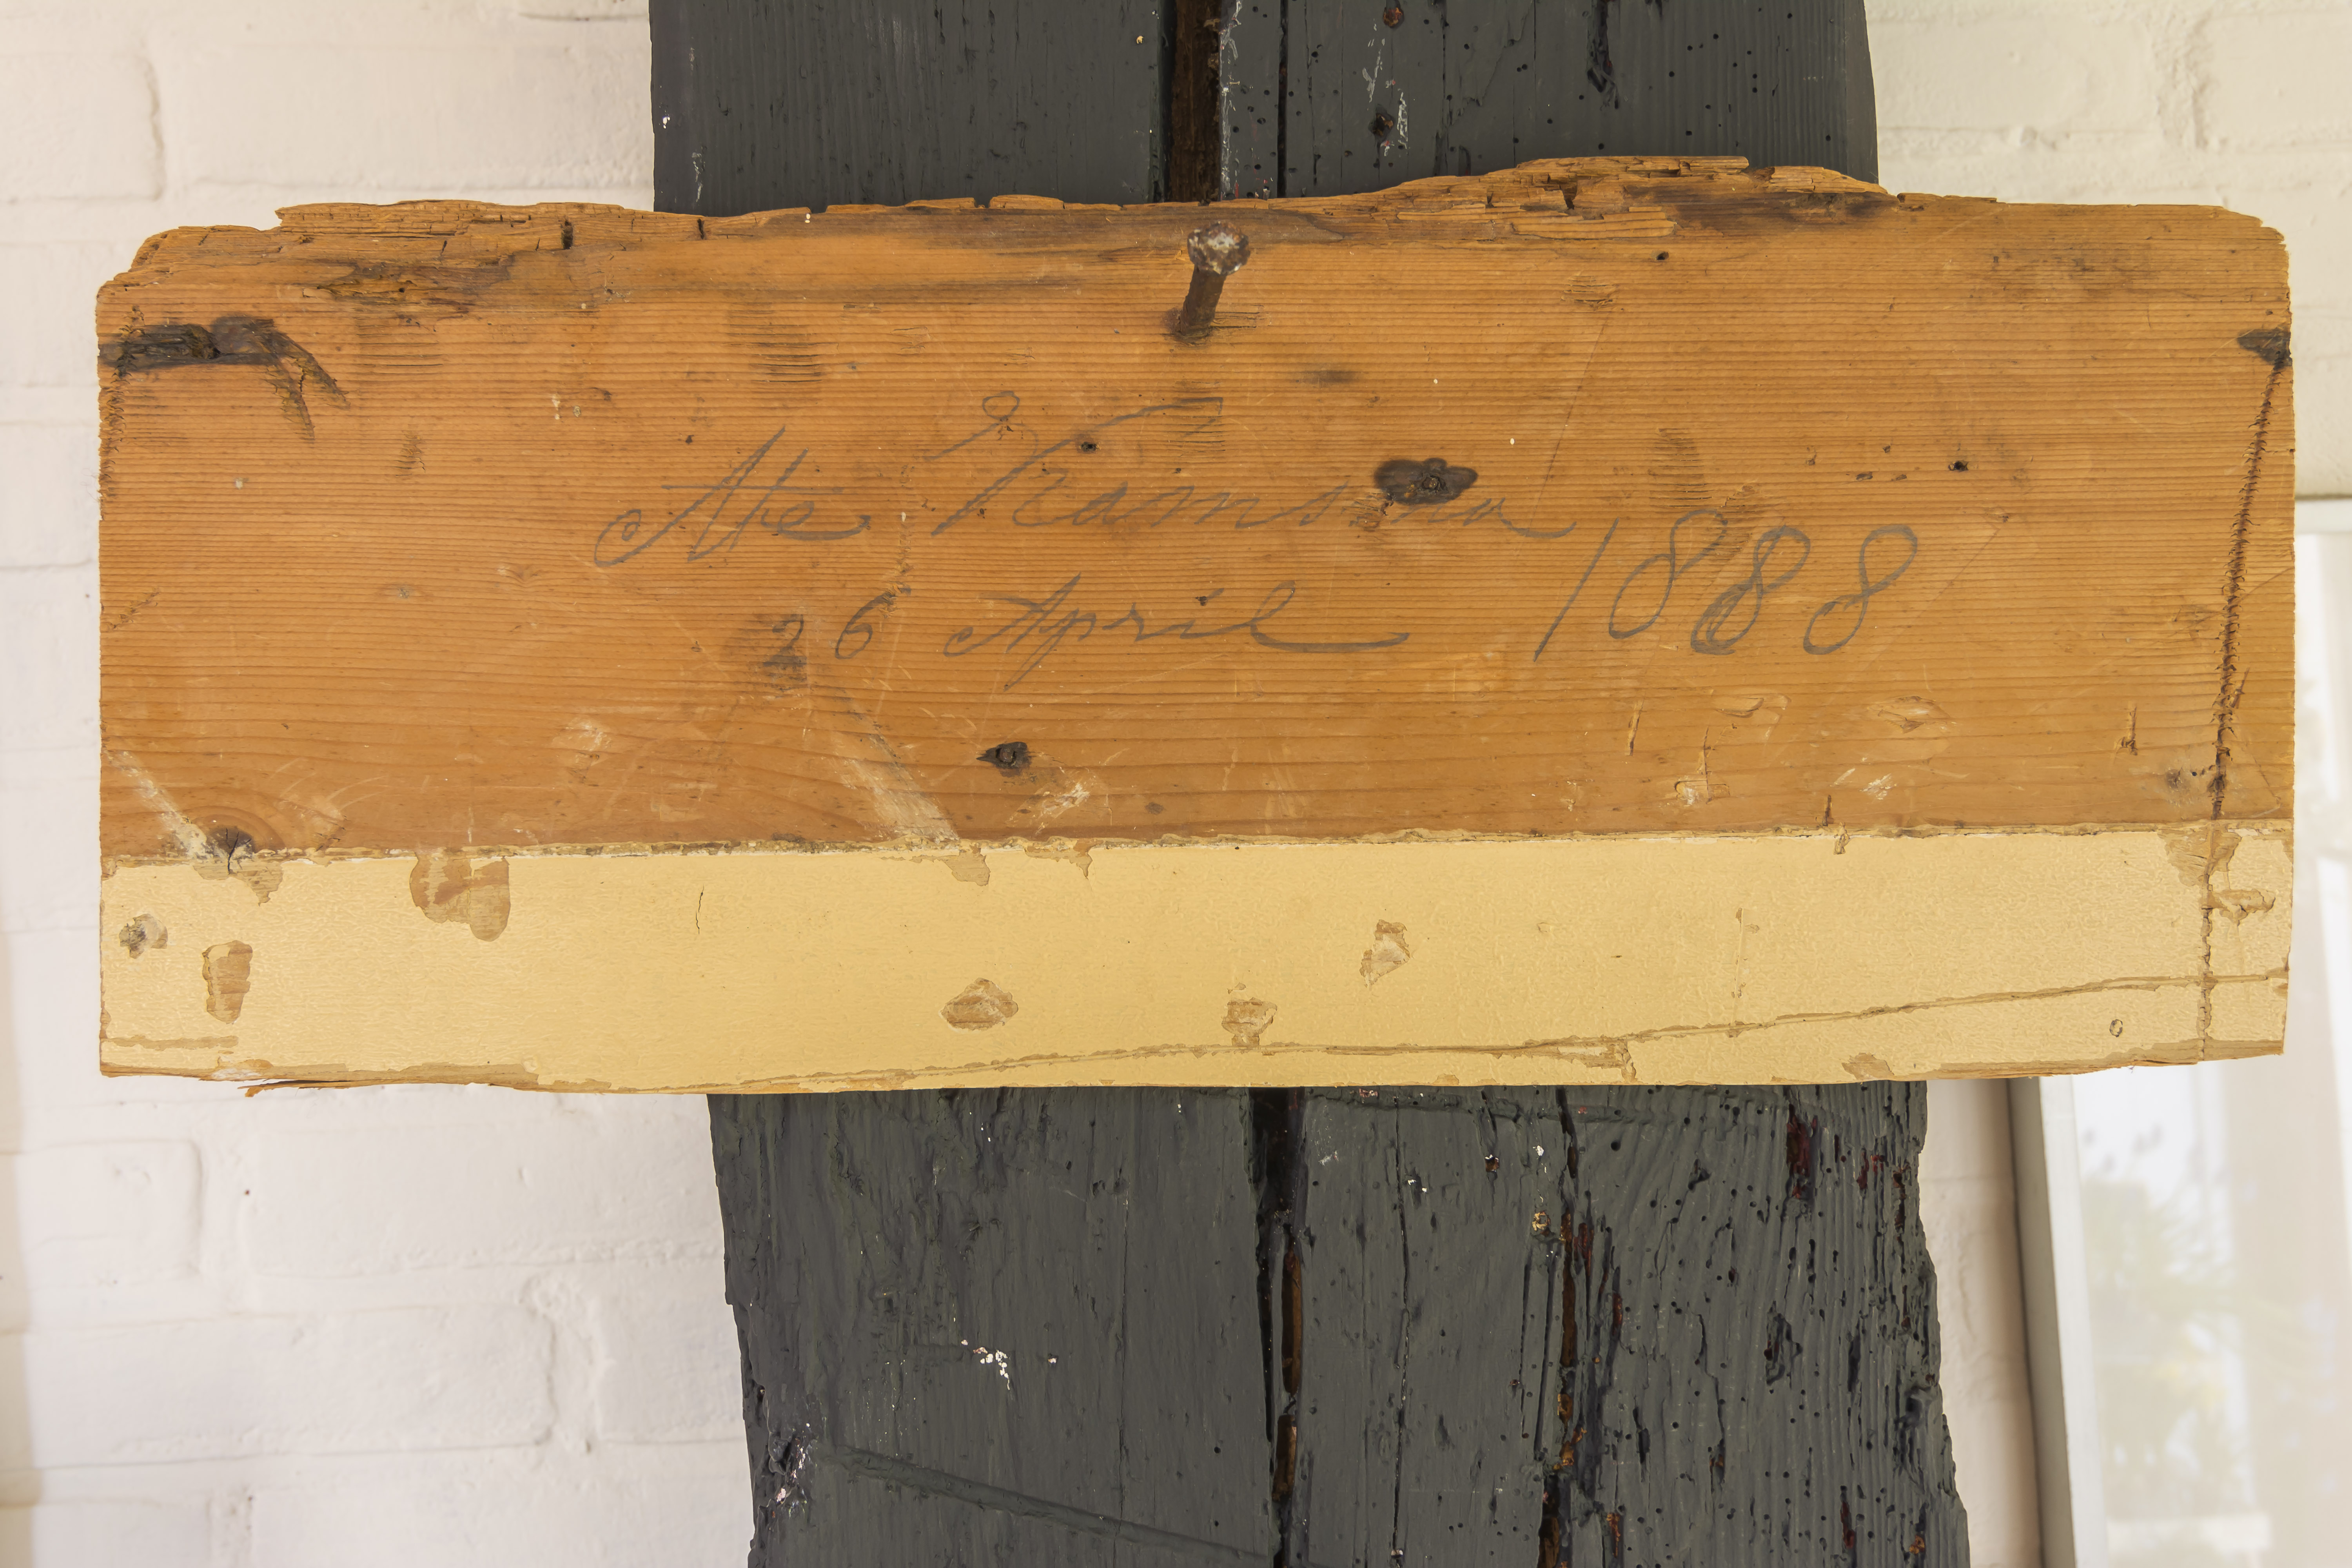 Ate Kamsma
26 April 1888